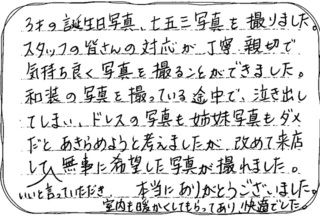 3才の誕生日写真、七五三写真を撮りました。
スタッフの皆さんの対応が丁寧、親切で
気持ち良く写真を撮ることができました。
和装の写真を撮っている途中で、泣き出し
てしまい、ドレスの写真も姉妹写真もダメ
だとあきらめようと考えましたが、改めて来店
して無事に希望した写真が撮れました。
いいと言っていただき、本当にありがとうございました。
室内も暖かくしてもらってあり、快適でした。